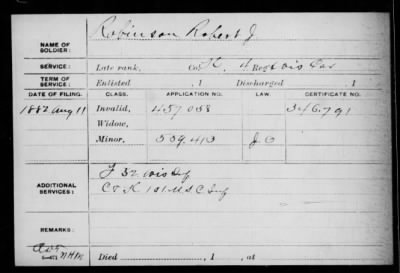 NAME OF SOLDIER: Robinson Robert J.
SERVICE: Late rank, Co. K, 4 Reg't Wis Cav
TERM OF SERVICE: Enlisted , 1 Discharged , 1
DATE OF FILING. CLASS. APPLICATION NO. LAW. CERTIFICATE NO.
1882 Aug 11 Invalid, 457.058 346.791
Widow,
Minor, 539.413
ADDITIONAL SERVICES: F 32 Wis Inf
Co K 1st U.S.C. Inf
REMARKS:
Died , 1 , at